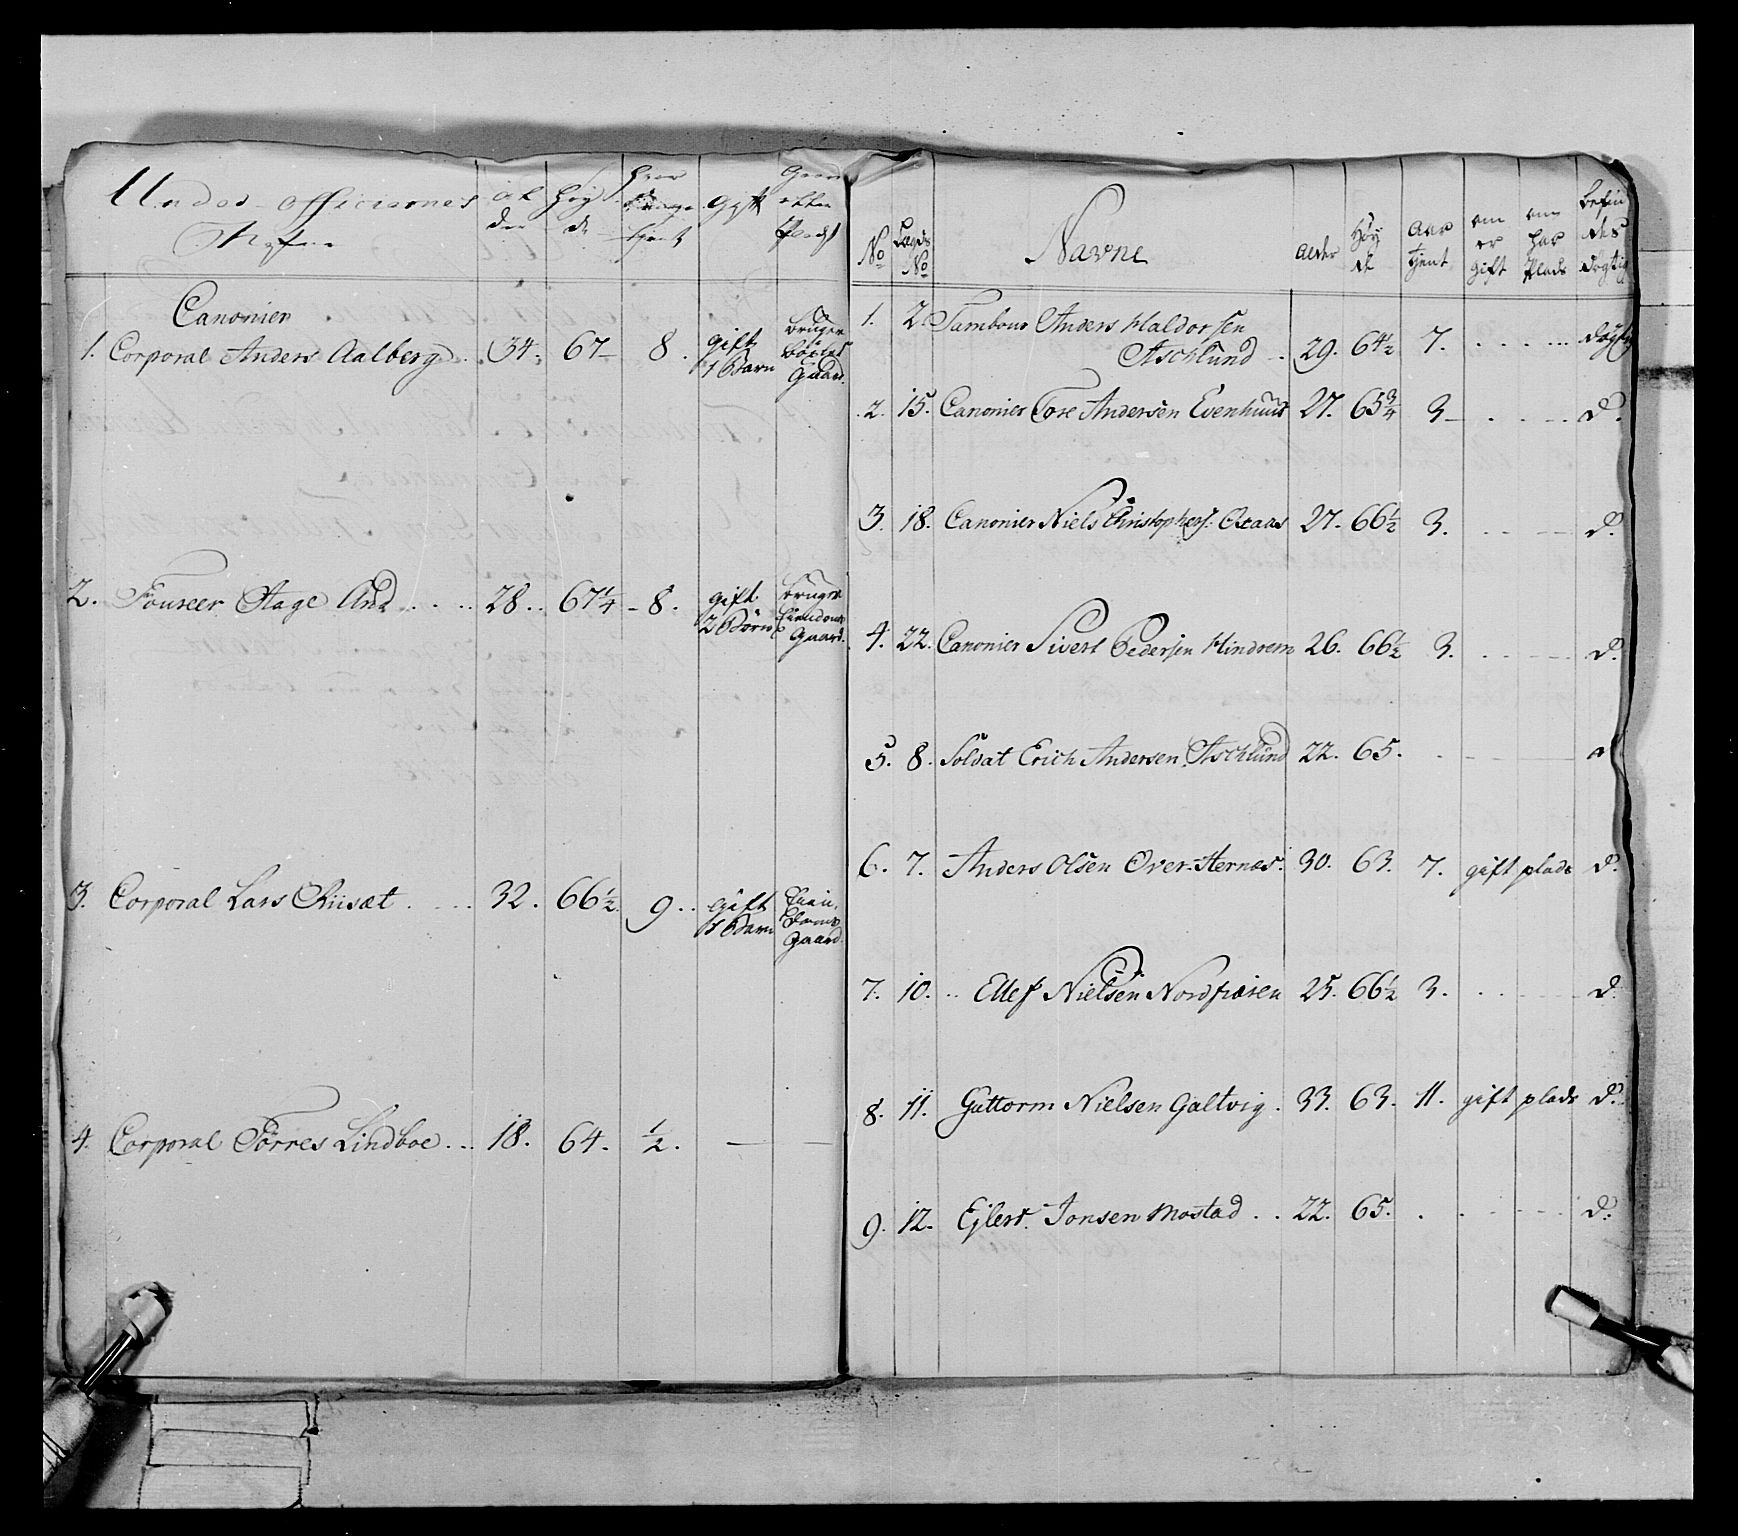 Under-officierernes
Nafne
Al
der
Høy
de
hvor
længe
tient
Gift
Gaard
eller
Plads
Canonier
1. Corporal Anders Aalberg . 34. 67 8. gift
1 Barn
bruger
böxlet
Gaard.
2. Foureer Aage Aad . . . . 28 . . 67 1/4 - 8. gift
2 Börn
bruger
Gaard.
3. Corporal Lars Riisæt . . . . 32. 66 1/2. 9 . . gift
1 Barn
Eien-
doms
Gaard.
4. Corporal Törres Lindboe . . . 18. 64. 1/2. — —
No
Lægds
No
Navne
Alder
Höy
de
Aar
tient
om
er
gift
om
har
Plads
befin
des
dögtig
1. 2. Tambour Anders Haldorsen
Aschlund . . 29. 64 1/2 7. . . . . . . dögtig
2. 15. Canonier Tore Andersen Evenhuus 27. 65 3/4 3 - . . . . . d.
3. 18. Canonier Niels Christophers: Osaas 27. 66 1/2 3. . . - - - d.
4. 22. Canonier Sivert Pedersen Hindrem 26. 66 1/2 3. . . - - - d.
5. 8. Soldat Erich Andersen Aschlund 22. 65. . - - - - d
6. 7. Anders Olsen Over-Hernæs. 30. 63. 7. gift plads d.
7. 10. . . Ellef Nielsen Nordfiæren 25. 66 1/2 3. . . - - - d.
8. 11. Guttorm Nielsen Galtvig . 33. 63. 11. gift plads d.
9. 12. Ejlert Jonsen Mostad . . 22. 65. . . - - - - d.